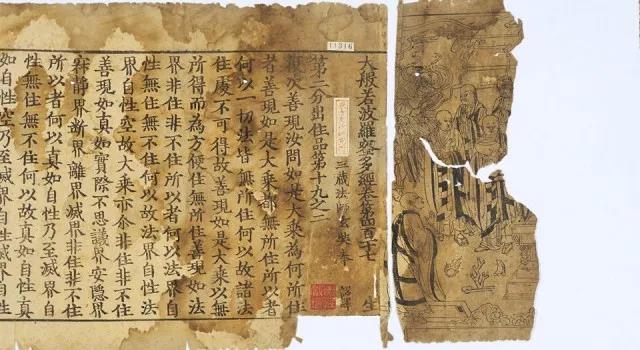 大般若波羅蜜多經卷第四百一十七 生
第二分出住品第十九之二
三藏法師玄奘奉 詔譯
復次善現汝問如是大乘為何所住
者善現如是大乘都無所住所以者
何以一切法皆無所住何以故諸法
住處不可得故善現如是大乘以無
所得而為方便住無所住善現如法
界非住非不住所以者何以法界自
性無住無不住何以故法界自性法
界自性空故大乘亦余非住非不住
善現如真如實際不思議界安隱界
寂靜界斷界離界滅界非住非不住
所以者何以真如自性乃至滅界自
性無住無不住何以故真如自性真
如自性空乃至滅界自性滅界自性
11316